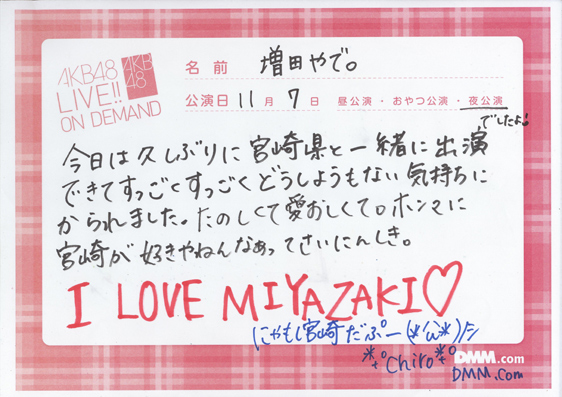 AKB48
LIVE!!
ON DEMAND
AKB
48
名前 増田やで。
公演日 11月7日 昼公演・おやつ公演・夜公演
でしたよ!
今日は久しぶりに宮崎県と一緒に出演
できてすっごくすっごくどうしようもない気持ちに
かられました。たのしくて愛おしくて。ホンマに
宮崎が好きやねんなぁってさいにんしき。
I LOVE MIYAZAKI♡
にゃもし宮崎だぷー(*'ω'*)/ミ
Chiro
DMM.com
DMM.com